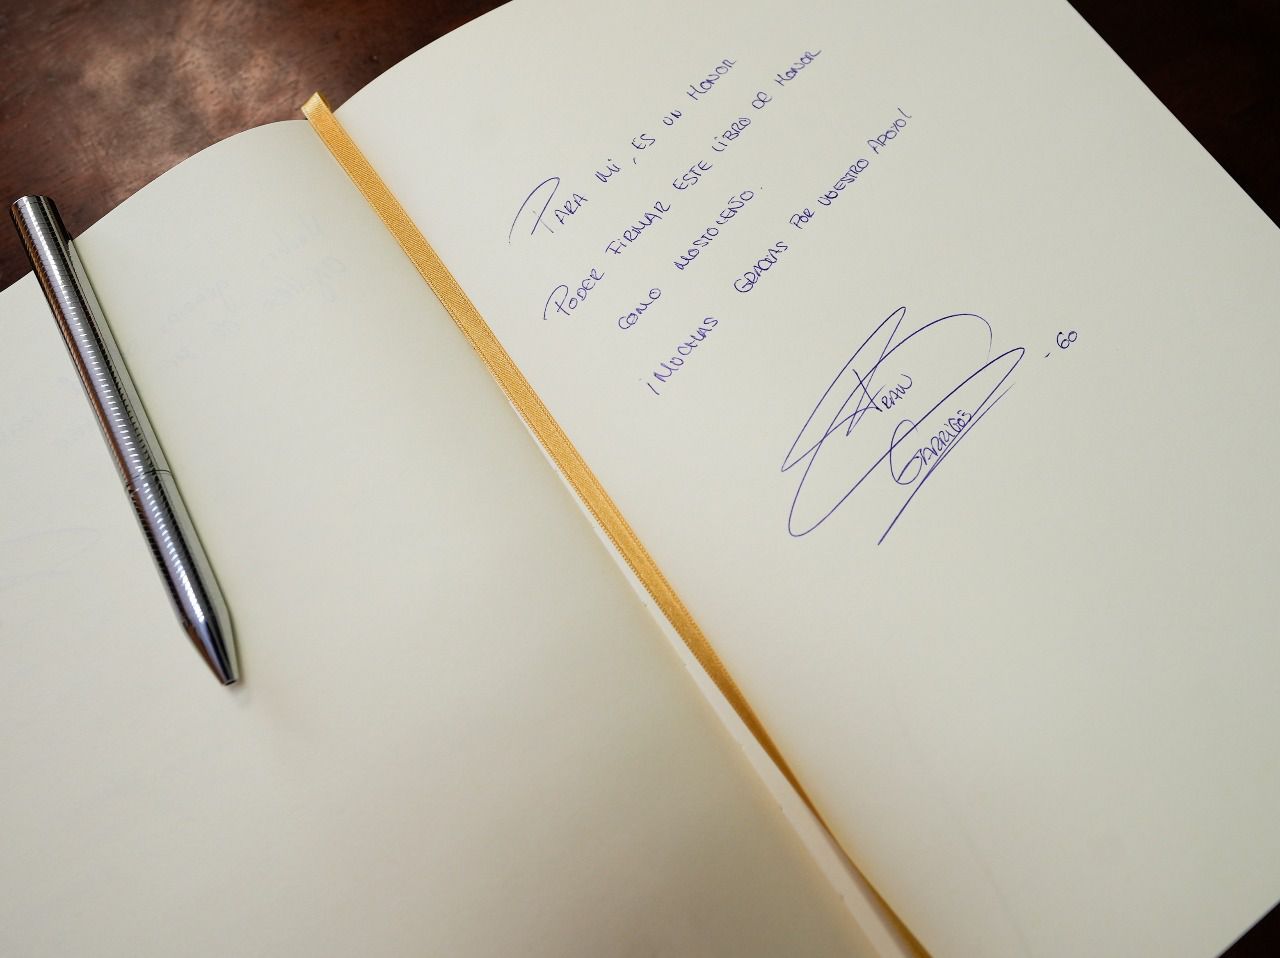 Para mi, es un honor
Poder firmar este libro de honor
como mostoleño.
¡Muchas gracias por vuestro apoyo!
Fran
Garrigós
-60